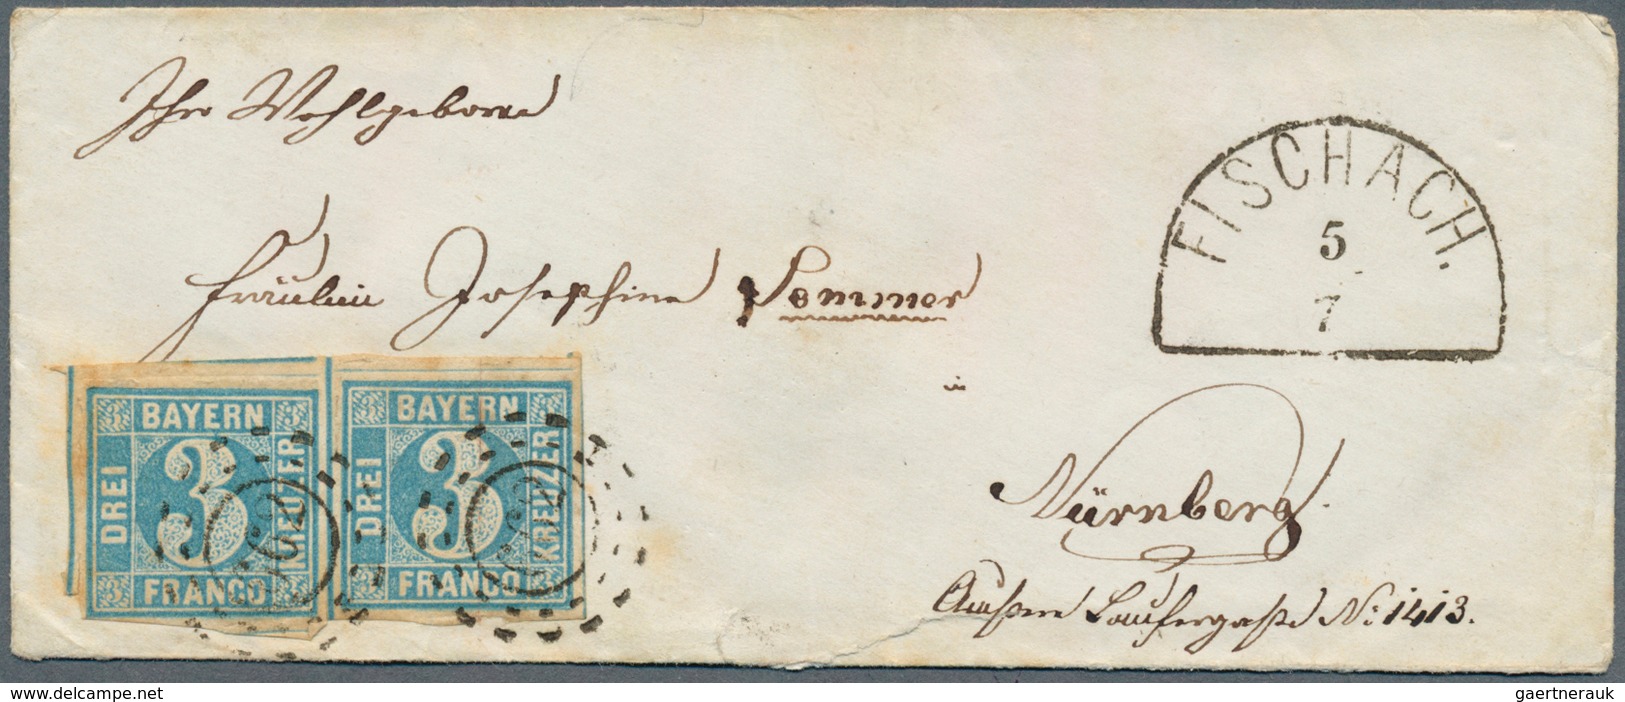 Ihro Wohlgeboren
FISCHACH.
5
7
Fräulein Josephine Sommer
in
BAYERN
DREI
3
KREUZER
FRANCO
BAYERN
DREI
3
KREUZER
FRANCO
Nürnberg.
Aeußere Laufergaße No: 1413.
www.delcampe.net
gaertnerauk